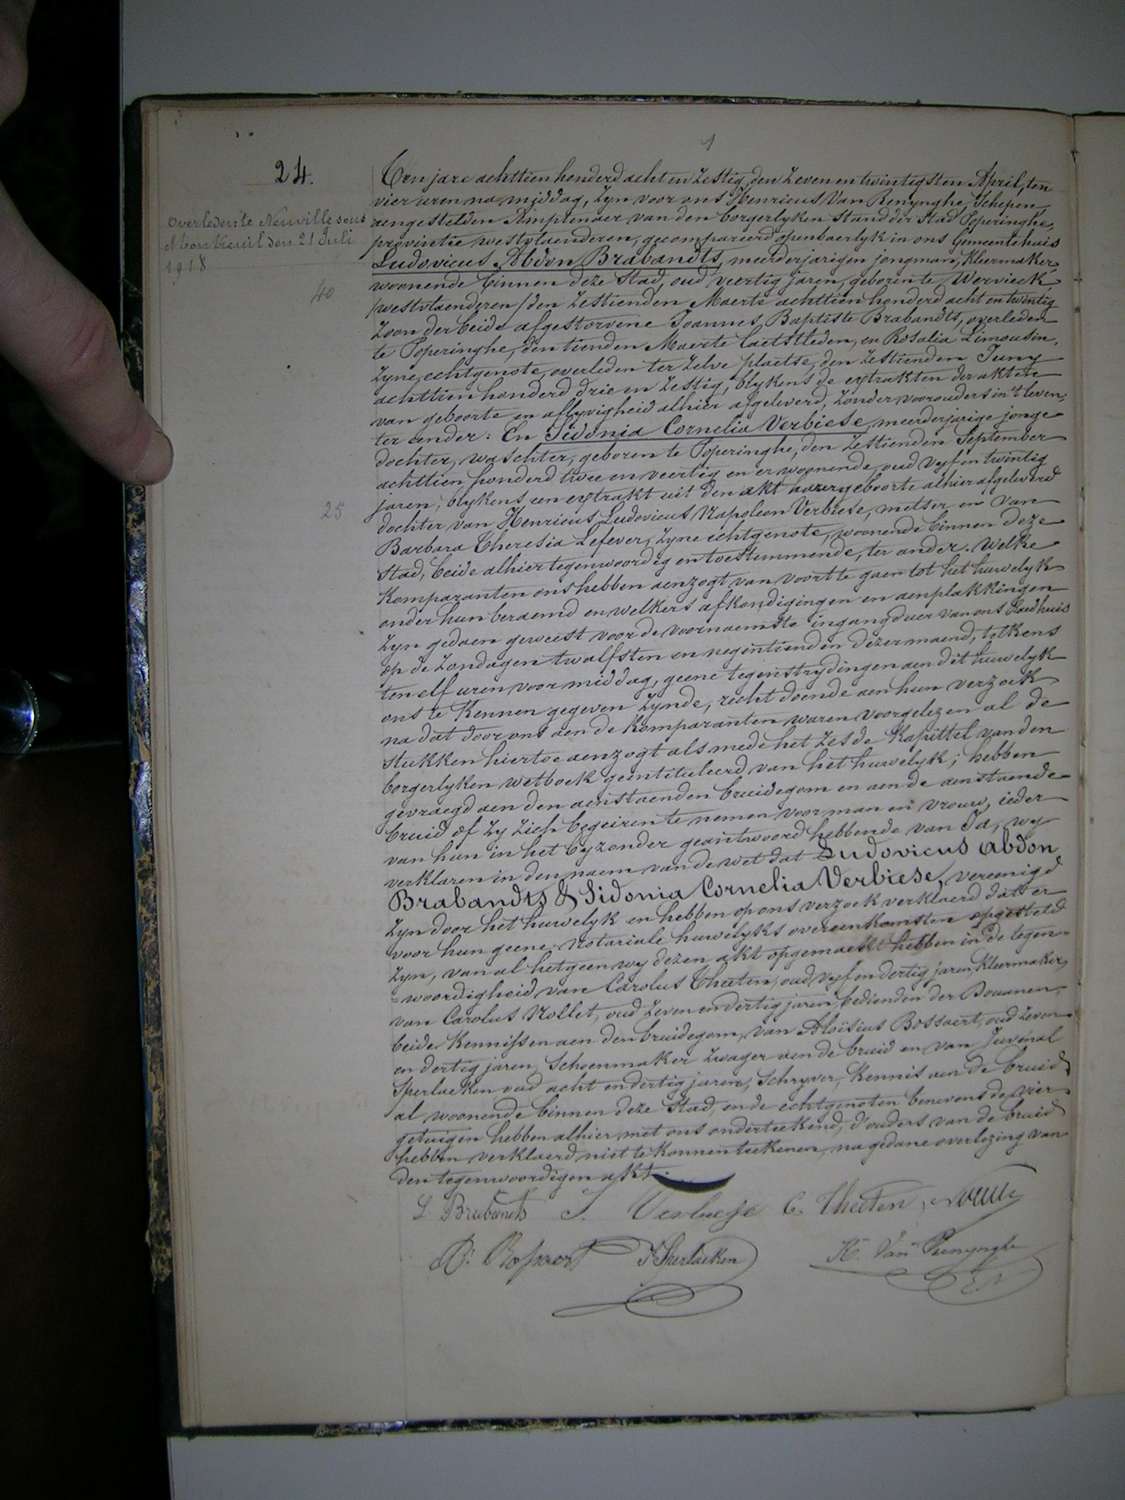 24.
Overleden te Neuville sous
Montreuil den 21 Juli
1918
40
25
Ten jare achttien honderd acht en zestig, den zeven en twintigsten April, ten
vier uren na middag, zyn voor ons Henricus Van Renynghe, Schepen,
aengestelden Amptenaer van den borgerlyken stand der Stad Poperinghe,
provintie westvlaenderen, gecompareerd openbaerlyk in ons Gemeentehuis
Ludovicus Abdon Brabandts, meerderjarigen jongman, kleermaker
woonende binnen deze Stad, oud veertig jaren, geboren te Wervieck
/westvlaenderen/ den zestienden Maerte achttien honderd acht en twintig
Zoon der beide afgestorvene Joannes Baptiste Brabandts, overleden
te Poperinghe, den tienden Maerte laetstleden, en Rosalia Limousin,
zyne echtgenote, overleden ter zelve plaetse, den zestienden Juny
achttien honderd drie en zestig, blykens de extrakten der akten
van geboorte en aflyvigheid alhier afgeleverd, zonder voorouders in 't leven,
ter eender: En Sidonia Cornelia Verbiese, meerderjarige jonge
dochter, waschter, geboren te Poperinghe, den zestienden September
achttien honderd twee en veertig en er woonende, oud vyf en twintig
jaren, blykens een extrakt uit den akt harer geboorte alhier afgeleverd
dochter van Henricus Ludovicus Napoleon Verbiese, metser, en van
Barbara Theresia Lefever, zyne echtgenote, woonende binnen deze
Stad, beide alhier tegenwoordig en toestemmende, ter ander. Welke
Komparanten ons hebben aenzogt van voort te gaen tot het huwelyk
onder hun beraemd en welkers afkondigingen en aenplakkingen
zyn gedaen geweest voor de voornaemste ingangdeur van ons Stadhuis
op de zondagen twalfsten en negentienden dezer maend, telkens
ten elf uren voor middag, geene tegenstrydingen aen dit huwelyk
ons te kennen gegeven zynde, recht doende aen hun verzoek
na dat door ons aen de Komparanten waren voorgelezen al de
stukken hiertoe aenzogt als mede het zesde Kapittel van den
borgerlyken wetboek geintituleerd van het huwelyk; hebben
gevraegd aen den aenstaenden bruidegom en aen de aenstaende
bruid of zy zich begeiren te nemen voor man en vrouw, ieder
van hun in het byzonder geantwoord hebbende van Ja, wy
verklaren in den naem van de wet dat Ludovicus Abdon
Brabandts & Sidonia Cornelia Verbiese, vereenigd
zyn door het huwelyk en hebben op ons verzoek verklaerd dat er
voor hun geene Notariale huwelyks overeenkomsten opgesteld
zyn, van al hetgeen wy dezen akt opgemaekt hebben in de tegen-
woordigheid van Carolus Theeten, oud vyf en dertig jaren, kleermaker,
van Carolus Nollet, oud zeven en dertig jaren, bedienden der Douanen,
beide kennissen aen den bruidegom, van Aloïsius Bossaert, oud zeven
en dertig jaren, Schoenmaker zwager aen de bruid en van Juvenal
Sperlaeken oud acht en dertig jaren, Schryver, kennis aen de bruid
al woonende binnen deze Stad, en de echtgenoten benevens de vier
getuigen hebben alhier met ons onderteekend, d'ouders van de bruid
hebben verklaerd niet te konnen teekenen, na gedane overlezing van
den tegenwoordigen akt.
L Brabandts S. Verbiese C. Theeten
A. Bossaert J. Sperlaeken H. Van Renynghe